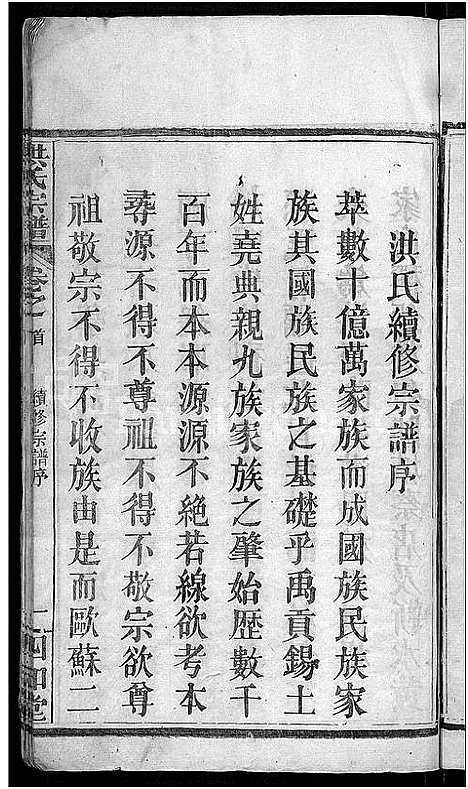 洪氏續修宗譜序
萃數十億萬家族而成國族民族家
族其國族民族之基礎乎禹貢錫土
姓堯典親九族家族之肇始歷數千
百年而本本源源不絕若線欲考本
尋源不得不尊祖不得不敬宗欲尊
祖敬宗不得不收族由是而歐蘇二
洪氏宗譜 卷之首 續修宗譜序 一